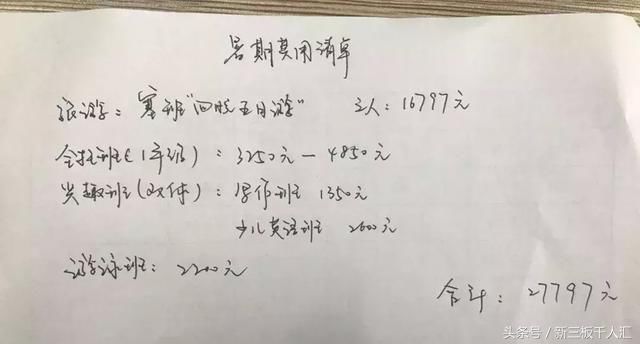 暑期费用清单
旅游：塞班"四晚五日游" 三人：16797元
全托班(1年级)：3250元－4850元
兴趣班(双休)：写作班 1350元
少儿英语班 2600元
游泳班：2200元
合计：27797元
头条号／新三板千人汇